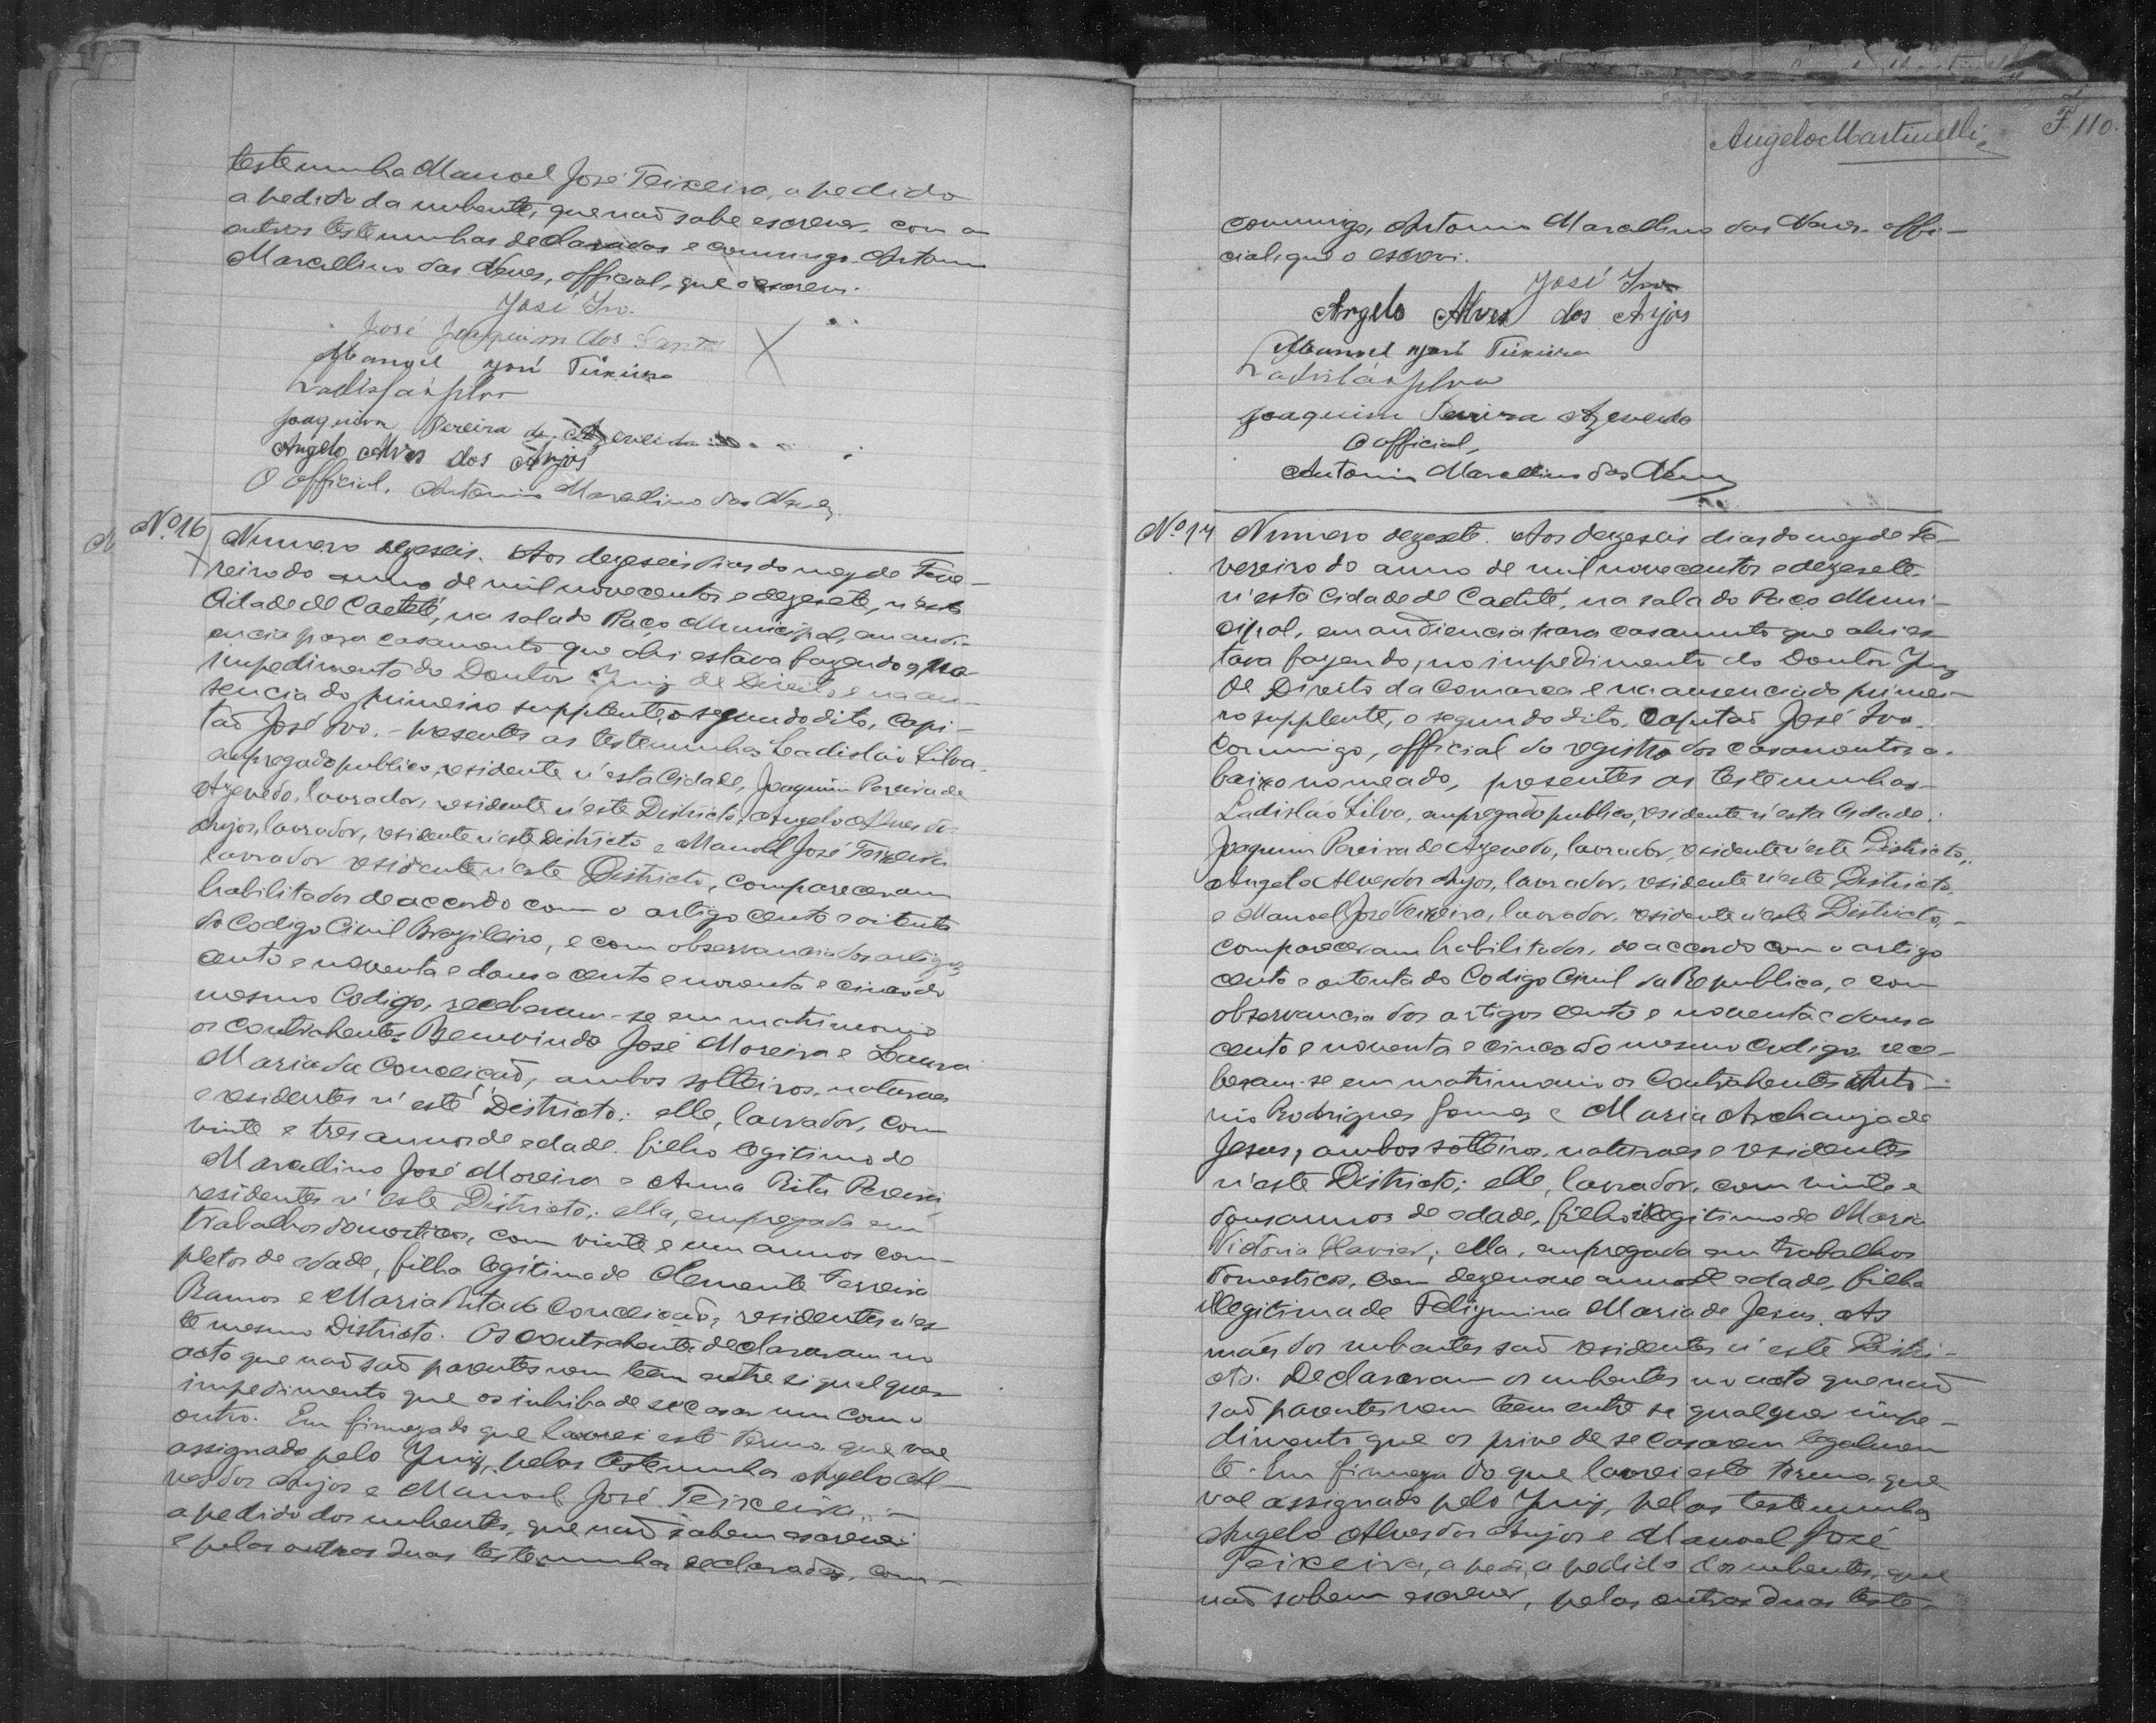 testemunha Manoel José Teixeira, a pedido
a pedido da nubente, que naõ sabe escrever, com as
outras testemunhas declaradas e commigo Antonio
Marcellino das Neves, official, que o escrevi.
José Ivo.
José Joaquim dos Santos
Manoel José Teixeira
Ladisláo Silva
Joaquim Pereira de Azevedo
Angelo Alves dos Anjos
O official, Antonio Marcellino das Neves
Nº 16
Numero dezeseis. Aos dezeseis dias do mez de Feve-
reiro do anno de mil novecentos e dezesete, n'esta
Cidade de Caeteté, na sala do Paço Municipal, em audi-
encia para casamento que ahi estava fazendo, no
impedimento do Doutor Juiz de Direito e na au-
sencia do primeiro supplente, o segundo dito, capi-
taõ José Ivo. - presentes as testemunhas Ladisláo Silva,
empregado publico, residente n'esta Cidade, Joaquim Pereira de
Azevedo, lavrador, residente n'este Districto, Angelo Alves dos
Anjos, lavrador, residente n'este Districto e Manoel José Teixeira
lavrador residente n'este Districto, compareceram
habilitados de accordo com o artigo cento e oitenta
do Codigo Civil Brazileiro, e com observancia dos artigos
cento e noventa e dous a cento e noventa e cinco do
mesmo Codigo, receberam-se em matrimonio
os contrahentes Bemvindo José Moreira e Laura
Maria da Conceicaõ, ambos solteiros, naturaes
e residentes n'este Districto: elle, lavrador, com
vinte e tres annos de edade, filho legitimo de
Marcellino José Moreira e Anna Rita Pereira,
residentes n'este Districto; ella, empregada em
trabalhos domesticos, com vinte e um annos com-
pletos de edade, filha legitima de Clemente Ferreira
Ramos e Maria Rita da Conceicaõ, residentes n'es-
te mesmo Districto. Os contrahentes declararam no
acto que naõ saõ parentes nem têm entre si qualquer
impedimento que os inhiba de se casar um com o
outro. Em firmeza do que lavrei este termo que vae
assignado pelo Juiz, pelas testemunhas Angelo Al-
ves dos Anjos e Manoel José Teixeira,
a pedido dos nubentes, que naõ sabem escrever
e pelas outras duas testemunhas declaradas, com-
Angelo Martinelli
F. 110.
commigo, Antonio Marcellino das Neves, offi-
cial, que o escrevi.
José Ivo
Angelo Alves dos Anjos
Manoel José Teixeira
Ladisláo Silva
Joaquim Pereira Azevedo
O official,
Antonio Marcellino das Neves
Nº 17
Numero dezesete. Aos dezeseis dias do mez de Fe-
vereiro do anno de mil novecentos e dezesete,
n'esta Cidade de Caeteté, na sala do Paço Muni-
cipal, em audiencia para casamento que ahi es-
tava fazendo, no impedimento do Doutor Juiz
de Direito da Comarca e na ausencia do primei-
ro supplente, o segundo dito, capitaõ José Ivo.
Commigo, official do registro dos casamentos a-
baixo nomeado, presentes as testemunhas
Ladisláo Silva, empregado publico, residente n'esta Cidade,
Joaquim Pereira de Azevedo, lavrador, residente n'este Districto,
Angelo Alves dos Anjos, lavrador, residente n'este Districto,
e Manoel José Teixeira, lavrador, residente n'este Districto,
compareceram habilitados, de accordo com o artigo
cento e oitenta do Codigo Civil da Republica, e com
observancia dos artigos cento e noventa e dous a
cento e noventa e cinco do mesmo Codigo, rece-
beram-se em matrimonio os contrahentes Anto-
nio Rodrigues Gomes e Maria Archanja de
Jesus, ambos solteiros, naturaes e residentes
n'este Districto; elle, lavrador, com vinte e
dous annos de edade, filho illegitimo de Maria
Victoria Xavier; ella, empregada em trabalhos
domesticos, com dezenove annos de edade, filha
illegitima de Felizmina Maria de Jesus. As
mães dos nubentes saõ residentes n'este Distri-
cto. Declararam os nubentes no acto que naõ
saõ parentes nem teem entre se qualquer impe-
dimento que os prive de se casarem legalmen-
te. Em firmeza do que lavrei este termo, que
vae assignado pelo Juiz, pelas testemunhas
Angelo Alves dos Anjos e Manoel José
Teixeira, a pedi, a pedido dos nubentes, que
naõ sabem escrever, pelas outras duas teste-